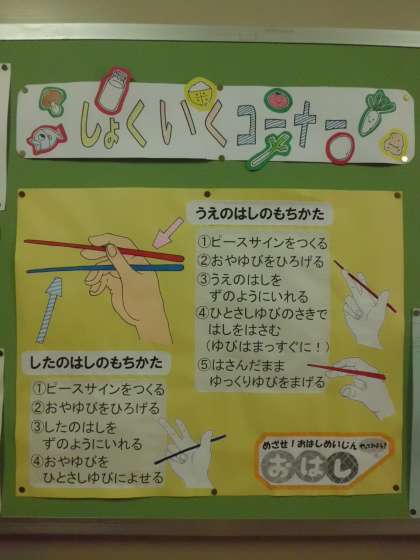 しょくいくコーナー
うえのはしのもちかた
①ピースサインをつくる
②おやゆびをひろげる
③うえのはしを
ずのようにいれる
④ひとさしゆびのさきで
はしをはさむ
(ゆびはまっすぐに!)
⑤はさんだまま
ゆっくりゆびをまげる
したのはしのもちかた
①ピースサインをつくる
②おやゆびをひろげる
③したのはしを
ずのようにいれる
④おやゆびを
ひとさしゆびによせる
めざせ!おはしめいじん
おはし